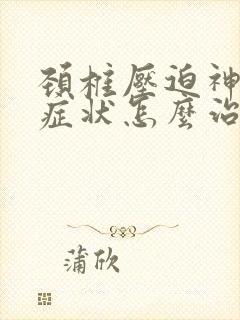 頸椎壓迫神
症状怎麼治
蒲欣